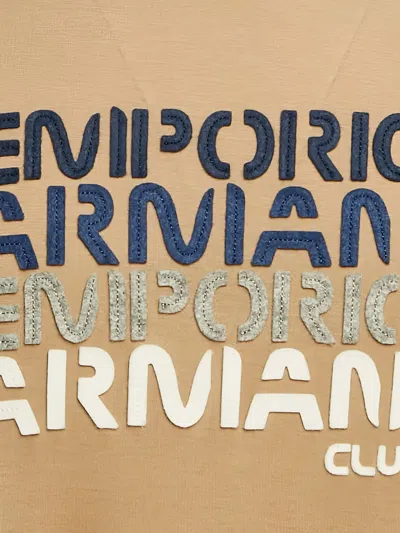 EMPORIO
ARMANI
EMPORIO
ARMANI
CLU